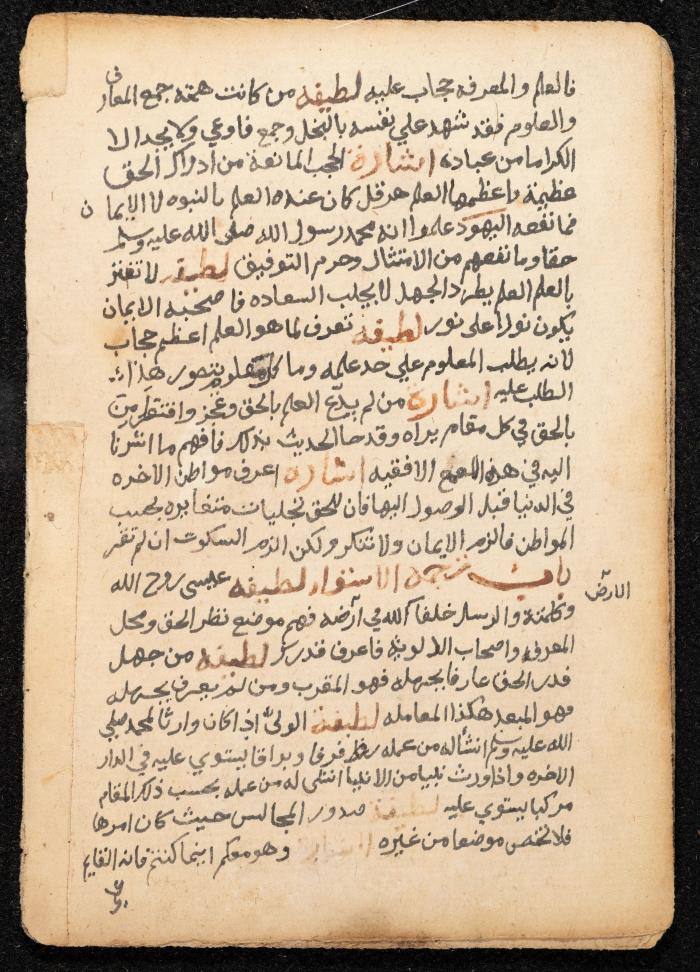 فالعلم والمعرفه حجاب عليه لطيفه من كانت همته جمع المعارف
والعلوم فقد شهد علي نفسه بالبخل وجمع فاوعي ولا يجد الا
الكراما من عباده اشارة الحجب المانعة من ادراك الحق
عظيمة واعظمها العلم هرقل كان عنده العلم بالنبوه لا الايمان
فما نفعه اليهود علموا انه محمد رسول الله صلى الله عليه وسلم
حقا وما نفعهم من الامتثال وحرم التوفيق لطيفه لا تغتر
بالعلم العلم يطرد الجهل لا يجلب السعاده فاصحبه الايمان
يكون نورا على نور لطيفه تعرف لما هو العلم اعظم حجاب
لانه يطلب المعلوم علي حد علمه وما كل معلوم يتصور هذا
الطلب عليه اشارة من لم يدع العلم بالحق وعجز وافتقر
بالحق في كل مقام يراه وقد جا الحديث بذلك فافهم ما اشرنا
اليه في هذه الافقيه اشاره اعرف مواطن الاخره
في الدنيا قبل الوصول اليها فان للحق تجليات متغايره بحسب
المواطن فالزم الايمان ولا تنكر ولكن الزم السكوت ان لم تقر
باب ترجمة الاستوا لطيفه عيسى روح الله
الارض
وكلمته والرسل خلفا الله في ارضه فهم موضع نظر الحق ومحل
المعرفه واصحاب الالوية فاعرف قدر لطيفه من جهل
قدر الحق عارفا بجهله فهو المقرب ومن لم يعرف بجهله
فهو المبعد هكذا المعامله لطيفة الولي اذا كان وارثا لمحمد صلي
الله عليه وسلم انشأ له من عمله رفرفا وبراقا يستوي عليه في الدار
الاخره واذا ورث نبيا من الانبيا انتشي له من عمله بحسب ذلك المقام
مركبا يستوي عليه لطيفة صدور المجالس حيث كان امرها
فلا تختص موضعا من غيره اشارة وهو معكم اينما كنتم فانه القايم